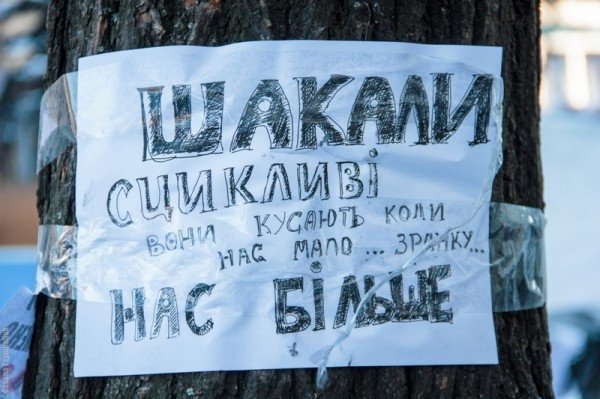 ШАКАЛИ
СЦИКЛИВІ
ВОНИ КУСАЮТЬ КОЛИ
НАС МАЛО ... ЗРАНКУ...
НАС БІЛЬШЕ